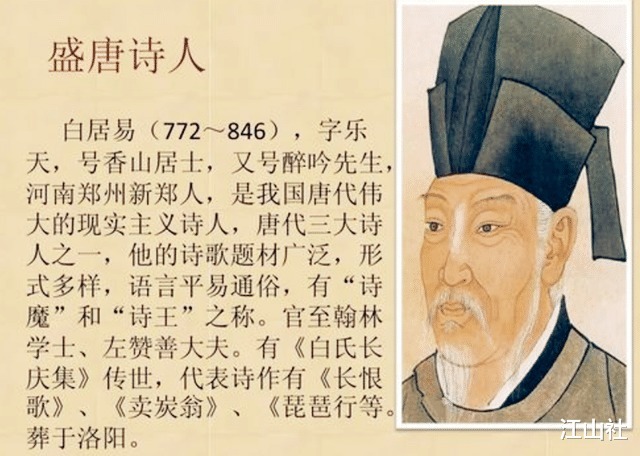 盛唐诗人
白居易（772～846），字乐
天，号香山居士，又号醉吟先生，
河南郑州新郑人，是我国唐代伟
大的现实主义诗人，唐代三大诗
人之一，他的诗歌题材广泛，形
式多样，语言平易通俗，有“诗
魔”和“诗王”之称。官至翰林
学士、左赞善大夫。有《白氏长
庆集》传世，代表诗作有《长恨
歌》、《卖炭翁》、《琵琶行等。
葬于洛阳。
江山社